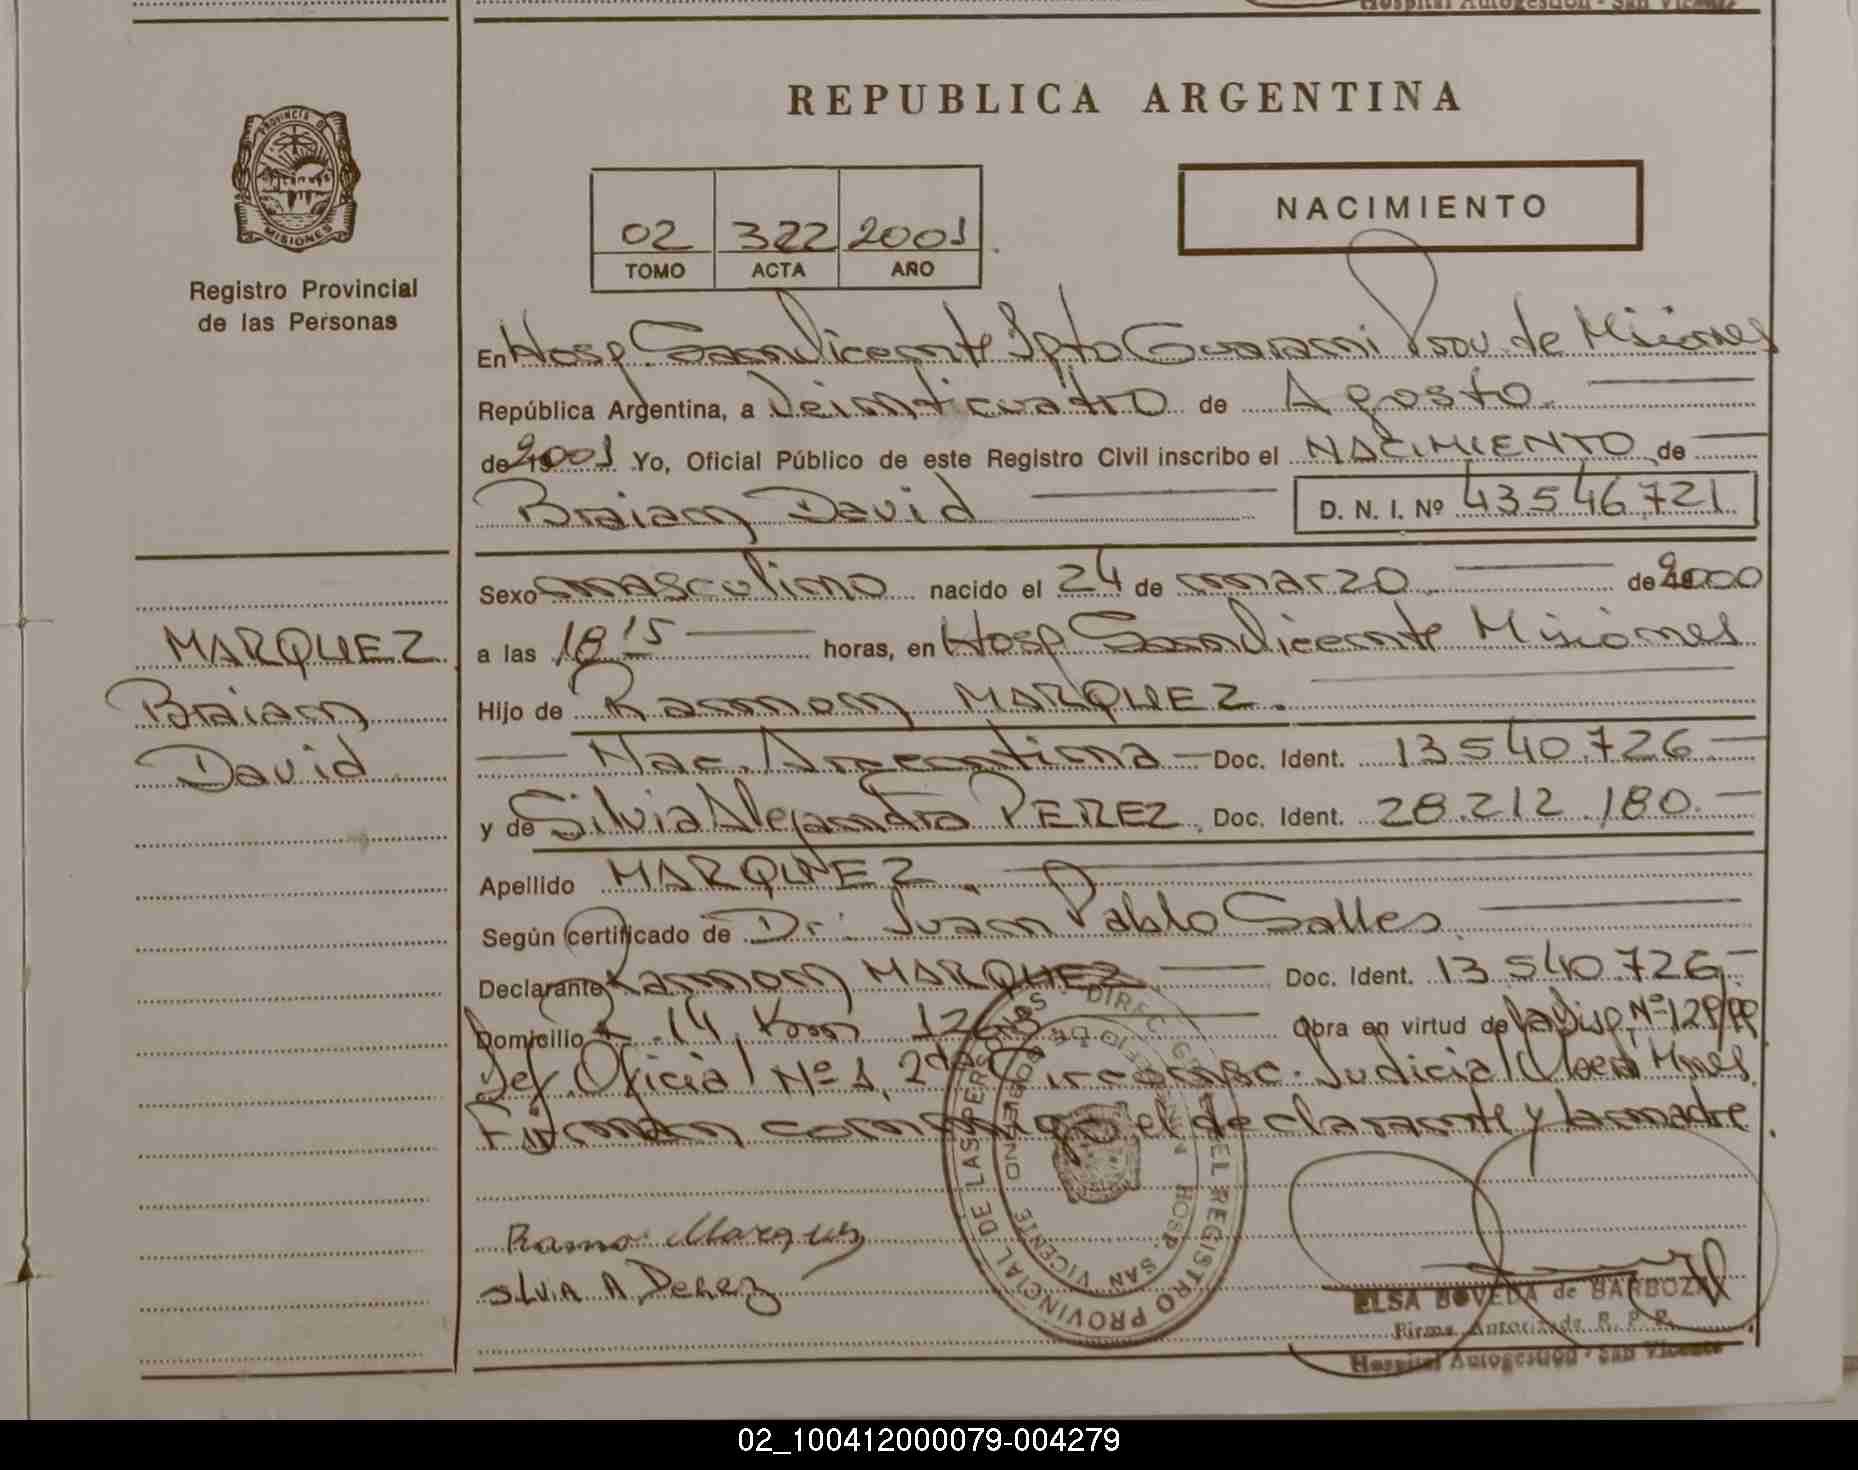 Hospital Autogestión - San Vicente
REPUBLICA ARGENTINA
PROVINCIA DE
MISIONES
Registro Provincial
de las Personas
02 322 2001
TOMO ACTA AÑO
NACIMIENTO
En Hosp San Vicente Dpto Guarani Prov. de Misiones
República Argentina, a Veinticuatro de Agosto
de 2001 Yo, Oficial Público de este Registro Civil inscribo el NACIMIENTO de
Braian David D. N. I. Nº 43546721
Sexo masculino nacido el 24 de marzo de 2000
a las 18 15 horas, en Hosp San Vicente Misiones
Hijo de Ramon MARQUEZ.
Nac. Argentina Doc. Ident. 13540.726
y de Silvia Alejandra PEREZ Doc. Ident. 28.212.180
Apellido MARQUEZ.
Según certificado de Dr. Juan Pablo Salles
Declarante Ramon MARQUEZ Doc. Ident. 13540726
Domicilio R. 14 Km Obra en virtud de la Disp. Nº
Def. Oficial Nº 1, 2da Circunsc. Judicial Oberá Mnes.
Firman conmigo el declarante y la madre.
MARQUEZ
Braian
David
Ramo Marques
SiLviA A Perez
REGISTRO PROVINCIAL DE LAS PERSONAS
HOSP. SAN VICENTE
ELSA BOVEDA de BARBOZA
Firma Autorizada R. P. P.
Hospital Autogestión - San Vicente
02_100412000079-004279